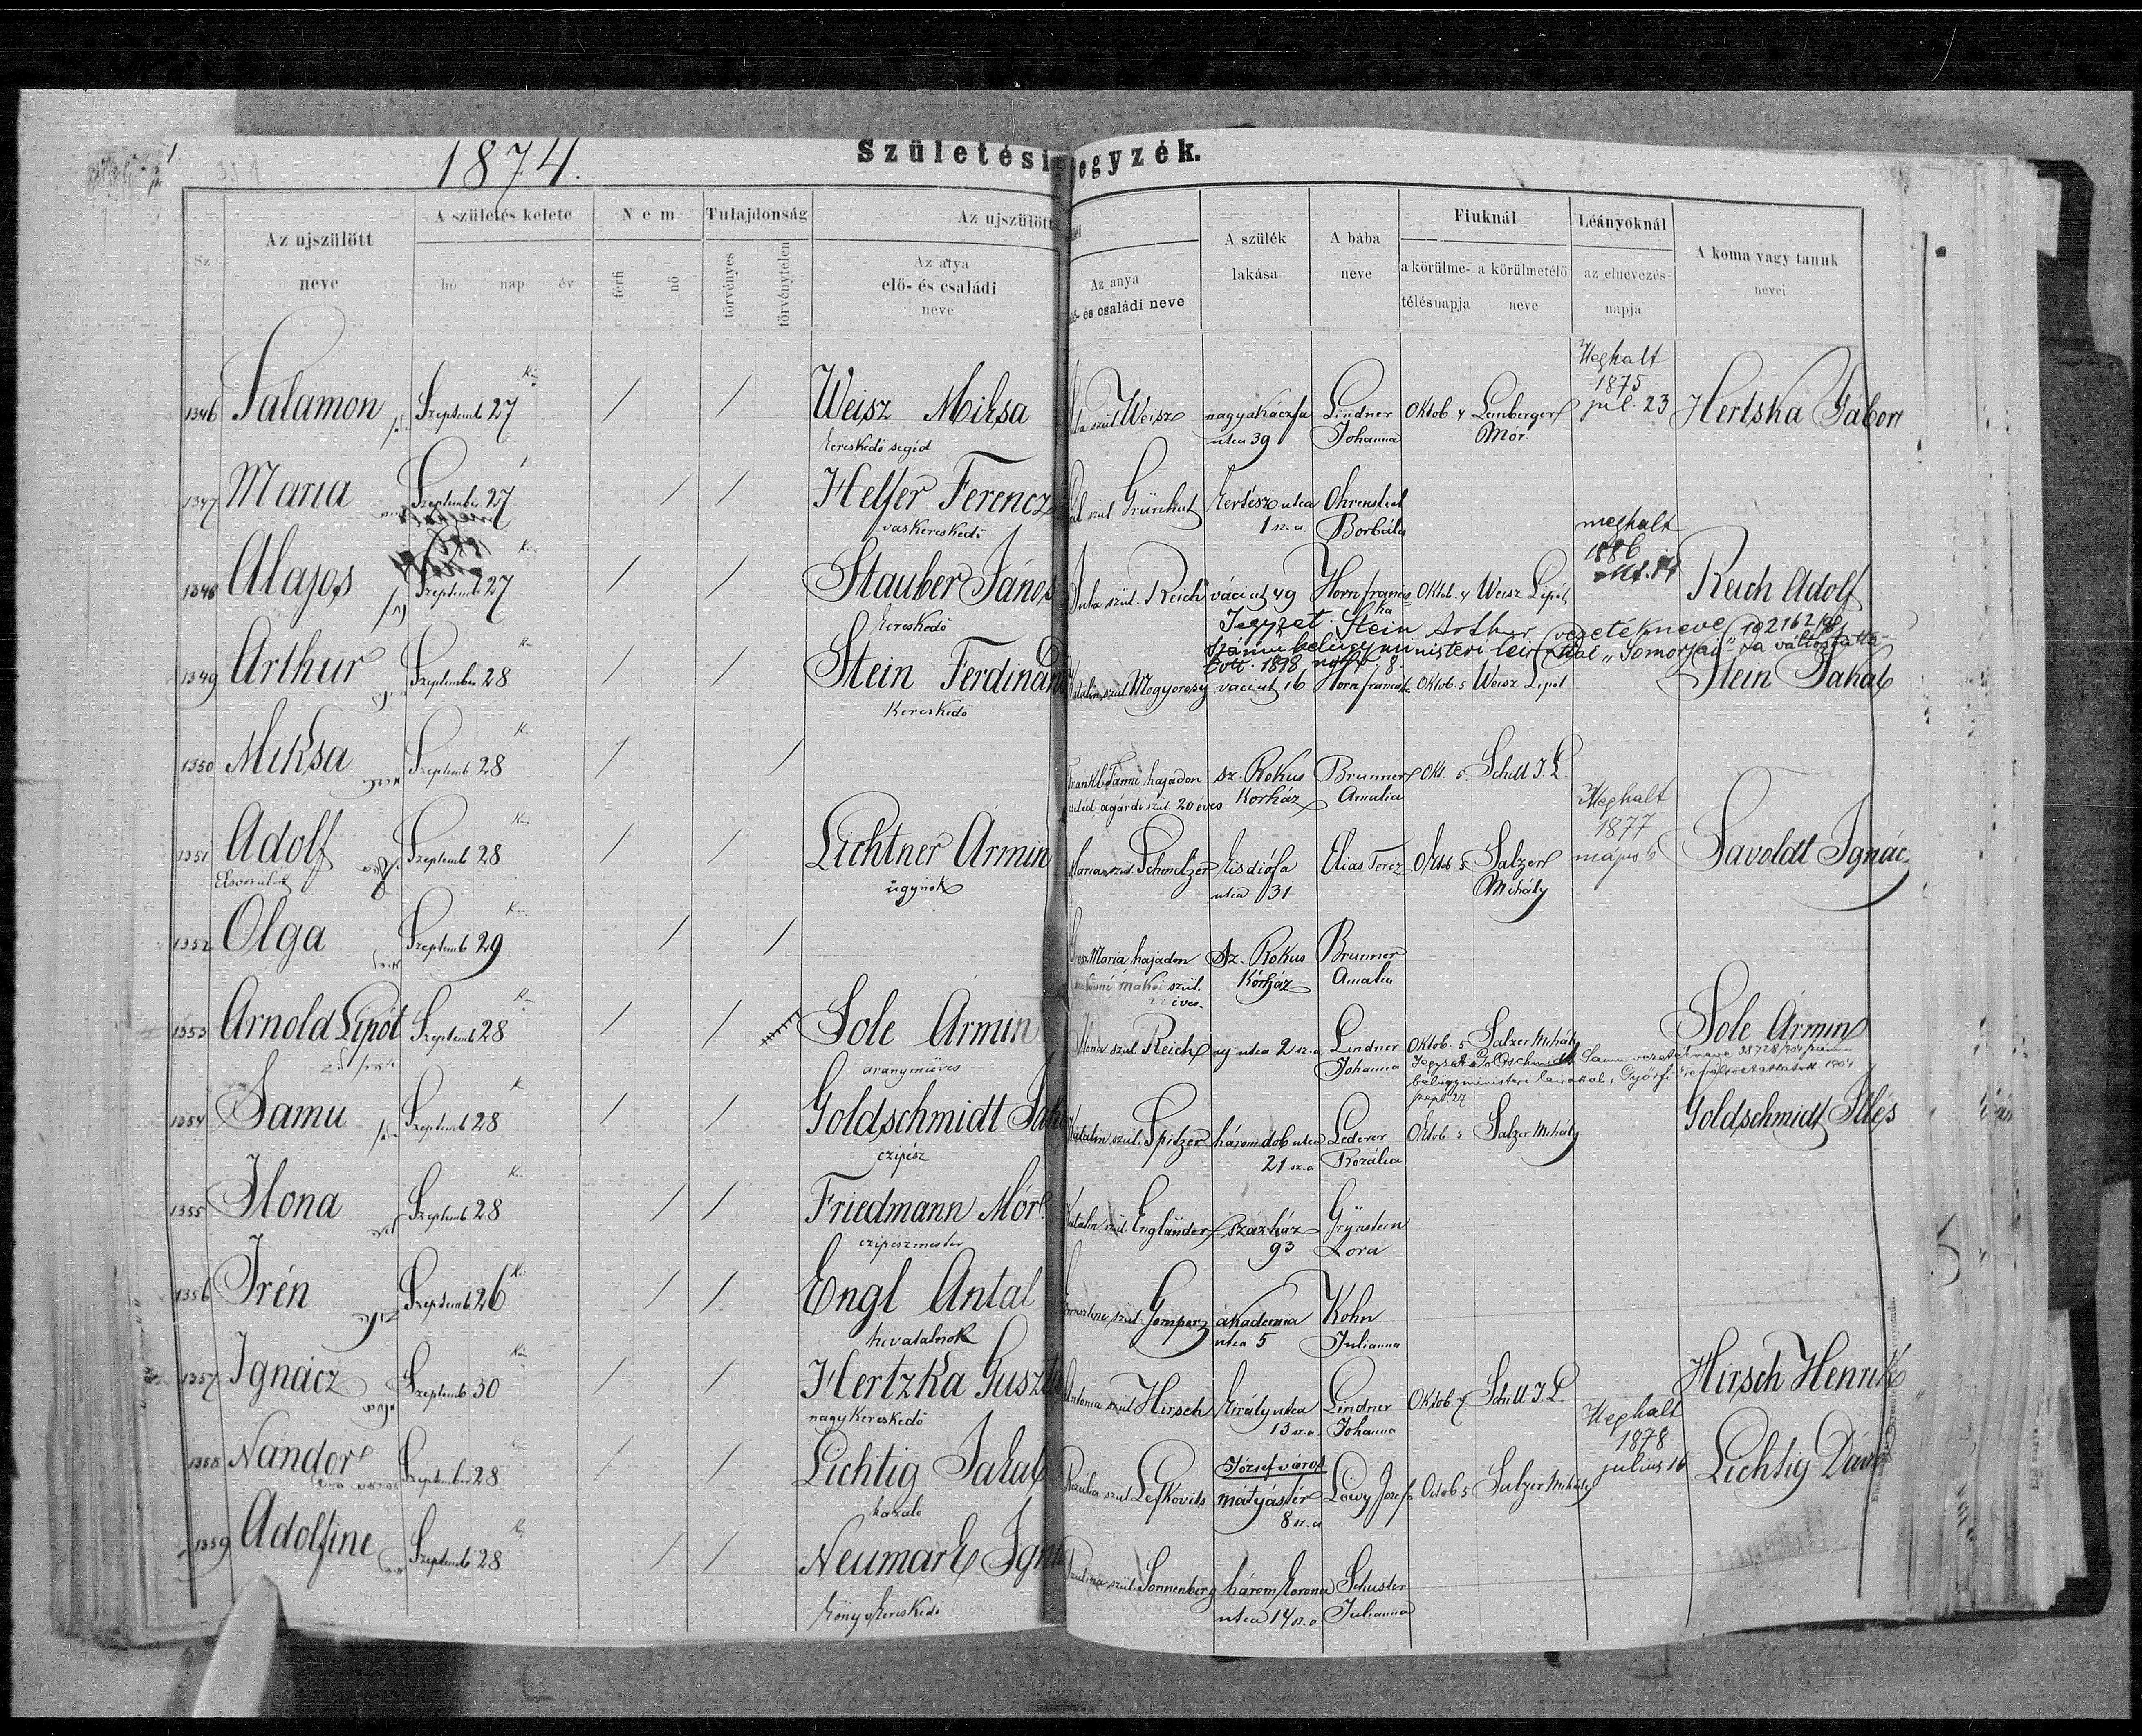 351
1874.
Születési jegyzék.
Sz.
Az ujszülött neve
A születés kelete
hó nap év
Nem
férfi nő
Tulajdonság
törvényes törvénytelen
Az ujszülött
Az atya elö- és családi neve
Az anya elö- és családi neve
A szülék lakása
A bába neve
Fiuknál
a körülmetélés napja
a körülmetélő neve
Léányoknál
az elnevezés napja
A koma vagy tanuk nevei
Meghalt
1875
júl. 23
1346 Salamon Szeptemb 27 / / Weisz Miksa szül Weisz nagyakáczfa Lindner Oktob. 4 Lemberger Hertska Gábor
kereskedö segéd utca 39 Johanna Mór.
1347 Maria Szeptember 27 / / Helfer Ferencz szül Grünhut Kertész utca Ohrenstiel
vaskereskedö 1 sz. a Borbála
meghalt
1886
1348 Alajos Szeptemb 27 / / Stauber János Julia szül. Reich váci ut 49 Horn francis Oktob. 4 Weisz Lipót Reich Adolf
kereskedö ka
Jegyzet. Stein Arthur vezetékneve 102162
számu belügyministeri leirattal „Somorjai" ra változtatta-
tott. 1898 8.
1349 Arthur Szeptember 28 / / Stein Ferdinand Katalin szül Mogyorosy vaci ut 16 Horn franciska Oktob. 5 Weisz Lipót Stein Jakab
Kereskedö
1350 Miksa Szeptemb 28 / / Frankl Fanni hajadon sz. Rokus Brunner Okt. 5. Schull J. L.
cseléd, agardi szül. 20 éves Korház Amalia
Meghalt
1877
május 6
1351 Adolf Szeptemb 28 / / Lichtner Ármin Maria szül. Schmelzer Kis diófa Elias Teréz Oktob. 5 Salzer Savoldt Ignácz
Elsőszülött ügynök utca 31 Mihály
1352 Olga Szeptemb 29 / / Maria hajadon Sz. Rokus Brunner
makói szül. Kórház Amalia
22 éves.
1353 Arnold Lipót Szeptemb 28 / / Sole Ármin Ilona szül. Reich uj utca 2 sz. a Lindner Oktob. 5 Salzer Mihály Sole Ármin
aranymüves Johanna
Jegyzet: Goldschmidt Samu vezetékneve 38728/904 számu
belügyministeri leirattal, Györfi-re változtattatott 1904
szept. 27
1354 Samu Szeptemb 28 / / Goldschmidt Katalin szül. Spitzer három dob utca Lederer Oktob. 5 Salzer Mihály Goldschmidt Illés
czipész 21 sz. a Rozália
1355 Ilona Szeptemb 28 / / Friedmann Mór Katalin szül Engländer százház Grynstein
czipészmester 93 Lora
1356 Irén Szeptemb 26 / / Engl Antal Ernesztine szül. Gomperz akademia Kohn
hivatalnok utca 5 Julianna
1357 Ignácz Szeptemb 30 / / Hertzka Guszt Antonia szül Hirsch Király utca Lindner Oktob. 7 Schull J. L. Hirsch Henrik
nagykereskedö 13 sz. a Johanna
Meghalt
1878
julius 16
1358 Nándor Szeptember 28 / / Lichtig Jakab Rozália szül Lefkovits Józsefváros mátyástér Löwy Jozefa Octob 5 Salzer Mihály Lichtig Dávid
házaló 8 sz. a
1359 Adolfine Szeptemb 28 / / Neumark Ignác Paulina szül. Sonnenberg három korona Schuster
könyvkereskedö utca 14 sz. a Julianna